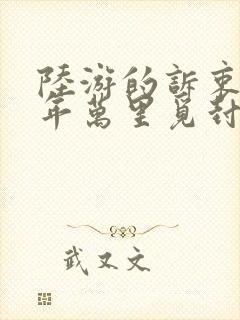 陸游的訴衷
年萬里覓封
武又文